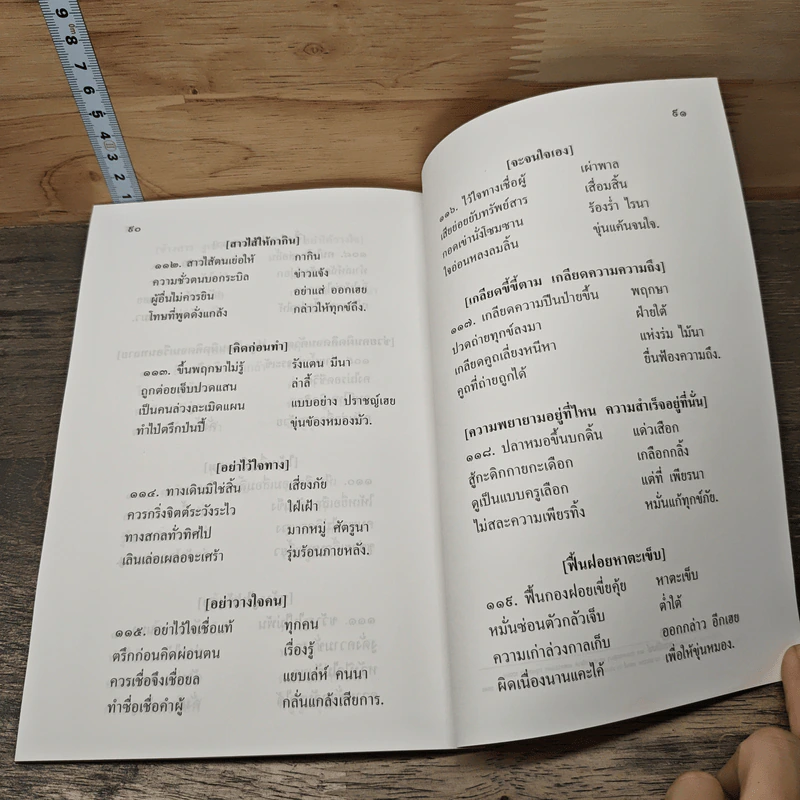 ๙๐
[สาวไส้ให้กากิน]
๑๑๒. สาวไส้ตนเย่อให้ กากิน
ความชั่วตนบอกระบิล ข่าวแจ้ง
ผู้อื่นไม่ควรยิน อย่าแส่ ออกเฮย
โทษที่พูดดั่งแกล้ง กล่าวให้ทุกข์ถึง.
[คิดก่อนทำ]
๑๑๓. ขึ้นพฤกษาไม่รู้ รังแตน มีนา
ถูกต่อยเจ็บปวดแสน ล่าลี้
เป็นคนล่วงละเมิดแผน แบบอย่าง ปราชญ์เฮย
ทำไปตริกปนปี้ ขุ่นข้องหมองมัว.
[อย่าไว้ใจทาง]
๑๑๔. ทางเดินมิใช่สิ้น เสี่ยงภัย
ควรกริ่งจิตต์ระวังระไว ใฝ่เฝ้า
ทางสกลทั่วทิศไป มากหมู่ ศัตรูนา
เลินเล่อเผลอจะเศร้า รุ่มร้อนภายหลัง.
[อย่าวางใจคน]
๑๑๕. อย่าไว้ใจเชื่อแท้ ทุกคน
ตรึกก่อนคิดผ่อนตน เรื่องรู้
ควรเชื่อจึงเชื่อยล แยบเล่ห์ คนนา
ทำซื่อเชื่อคำผู้ กลั่นแกล้งเสียการ.
๙๑
[จะจนใจเอง]
๑๑๖. ไว้ใจทางเชื่อผู้ เผ่าพาล
เสียย่อยยับทรัพย์สาร เสื่อมสิ้น
กอดเข่านั่งโซมซาน ร้องร่ำ ไรนา
ใจอ่อนหลงลมลิ้น ขุ่นแค้นจนใจ.
[เกลียดขี้ขี้ตาม เกลียดความความถึง]
๑๑๗. เกลียดความปีนป่ายขึ้น พฤกษา
ปวดถ่ายทุกข์ลงมา ฝ่ายใต้
เกลียดคูถเลี่ยงหนีหา แห่งร่ม ไม้นา
คูถที่ถ่ายถูกได้ ยื่นฟ้องความถึง.
[ความพยายามอยู่ที่ไหน ความสำเร็จอยู่ที่นั่น]
๑๑๘. ปลาหมอขึ้นบกดิ้น แด่วเสือก
สู้กะดิกกายกะเดือก เกลือกกลิ้ง
ดูเป็นแบบครูเลือก แต่ที่ เพียรนา
ไม่สละความเพียรทิ้ง หมั่นแก้ทุกข์ภัย.
[ฟื้นฝอยหาตะเข็บ]
๑๑๙. ฟื้นกองฝอยเขี่ยคุ้ย หาตะเข็บ
หมั่นซ่อนตัวกลัวเจ็บ ต่ำใต้
ความเก่าล่วงกาลเก็บ ออกกล่าว อีกเฮย
ผิดเนื่องนานแคะไค้ เพื่อให้ขุ่นหมอง.
9 8 7 6 5 4 3 2 1